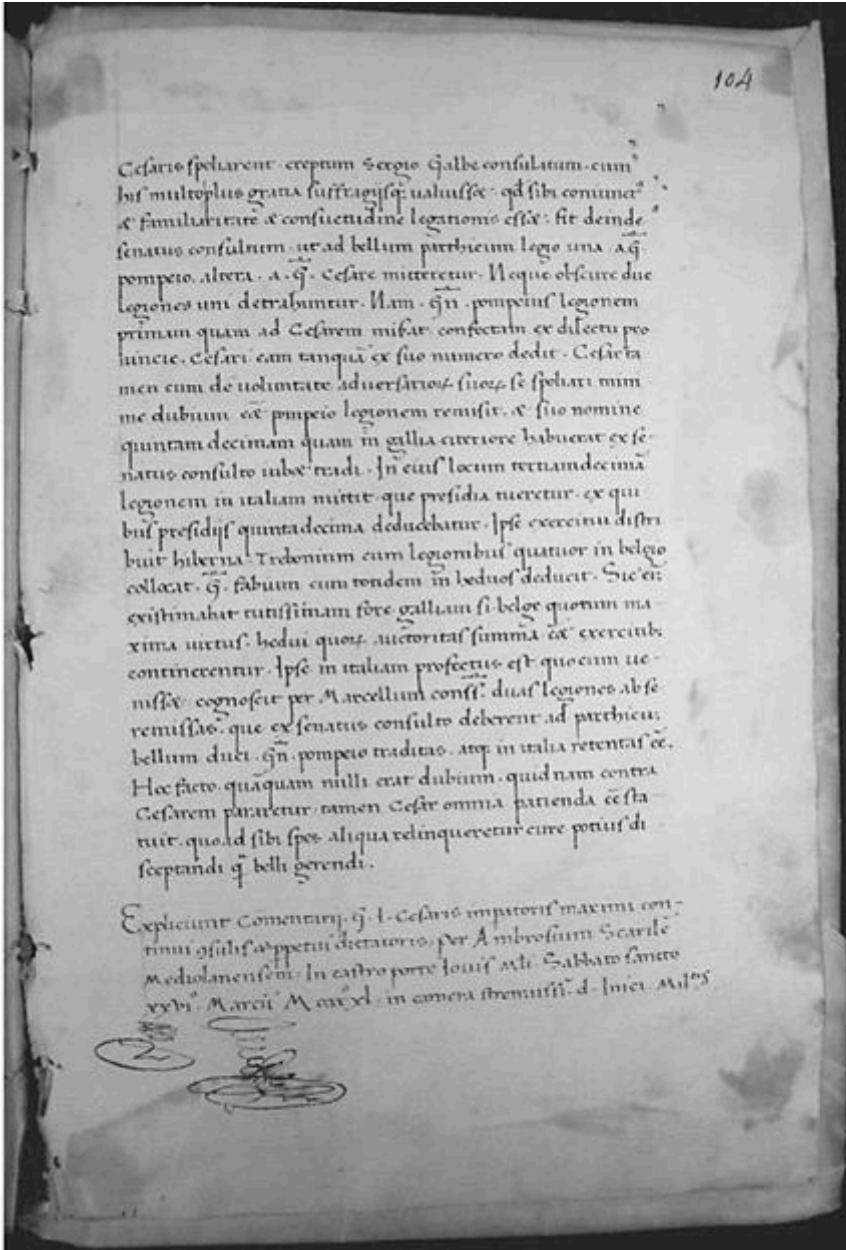 104
Cesaris spoliarent · ereptum Sergio Galbe consulatum · cum
his multoplus gratia suffragijsq; ualuisset · qd̄ sibi coniunct⁹
et familiaritatē et consuetudine legationis esset · fit deinde
senatus consultum · ut ad bellum parthicum legio una · a g̅ ·
pompeio · altera · a · g̅ · Cesare mitteretur · Neque obscure due
legiones uni detrahuntur · Nam · gn̄ · pompeius legionem
primam quam ad Cesarem misat confectam ex dilectu pro
uincie · Cesari eam tanquā ex suo numero dedit · Cesar ta
men cum de uoluntate adversarioꝝ suoꝝ se spoliari mini
me dubium eēt pompeio legionem remisit · et suo nomine
quintam decimam quam in gallia citeriore habuerat ex se
natus consulto iubet tradi · In eius locum tertiamdecimā
legionem in italiam mittit que presidia tueretur · ex qui
bus presidijs quintadecima deducebatur · Ipse exercitui distri
buit hiberna · Trebonium cum legionibus quatuor in belgio
collocat · g̅ · fabium cum totidem in heduos deducit · Sic eī
existimabat tutissimam fore galliam si belge quorum ma
xima uirtus · hedui quoꝝ auctoritas summa eēt exercitib;
continerentur · Ipse in italiam profectus est quo cum ue
nisset cognoscit per Marcellum conss̄ · duas legiones ab se
remissas · que ex senatus consulto deberent ad parthicū
bellum duci · gn̄ · pompeio traditas · atq; in italia retentas eē ·
Hoc facto · quāquam nulli erat dubium · quidnam contra
Cesarem pararetur · tamen Cesar omnia patienda eē sta
tuit · quoad sibi spes aliqua relinqueretur iure potius di
sceptandi q̄ belli gerendi ·
Expliciunt Comentarij · g̅ · I · Cesaris impatoris maximi con
tinui ꝯsulis dictatoris · per Ambrosium
Mediolanensem · In castro porte Iouis Mli · Sabbato sancto
xxvi° Marcii M cccc° xl · in camera strenuiss̄ · d · Inici